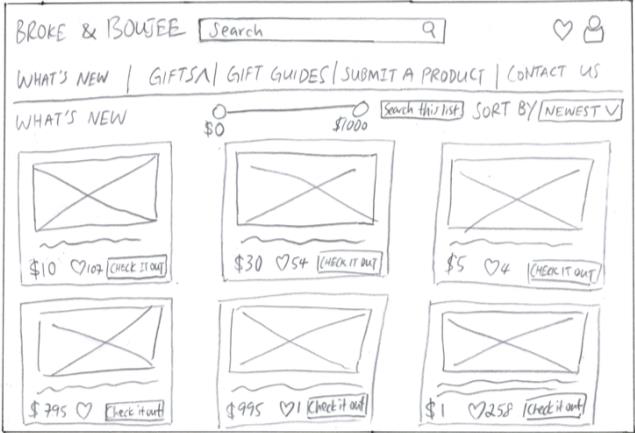 BROKE & BOUJEE Search
WHAT'S NEW | GIFTS | GIFT GUIDES | SUBMIT A PRODUCT | CONTACT US
WHAT'S NEW $0 $1000 Search this list SORT BY NEWEST
$10 107 CHECK IT OUT $30 54 CHECK IT OUT $5 4 CHECK IT OUT
$795 Check it out $995 1 Check it out $1 258 Check it out